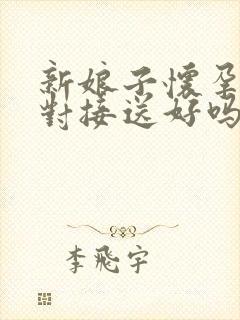 新娘子懷孕
對接送好嗎
李飛宇